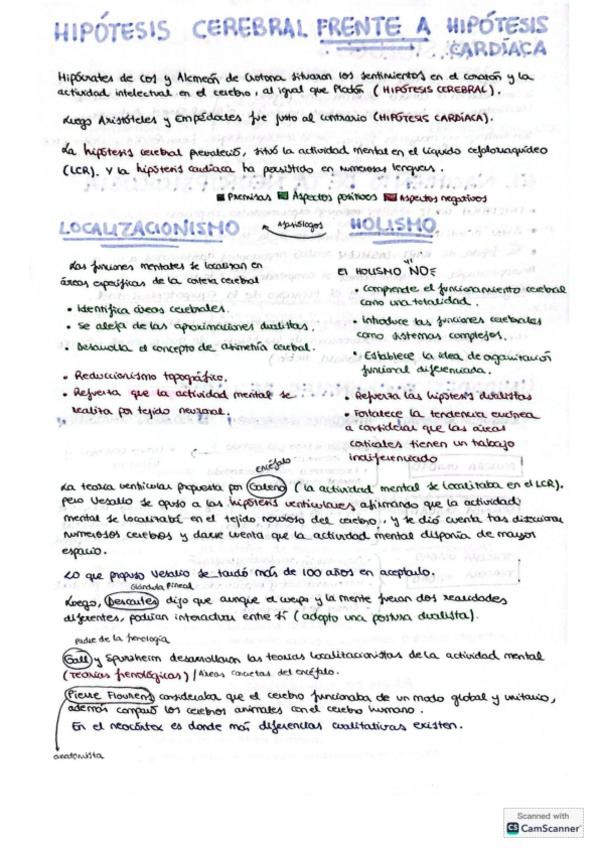 HIPÓTESIS CEREBRAL FRENTE A HIPÓTESIS
CARDÍACA
Hipócrates de Cos y Alcmeón de Crotona situaron los sentimientos en el corazón y la
actividad intelectual en el cerebro, al igual que Platón (HIPÓTESIS CEREBRAL).
Luego Aristóteles y Empédocles fue justo al contrario (HIPÓTESIS CARDÍACA).
La hipótesis cerebral prevaleció, situó la actividad mental en el líquido cefalorraquídeo
(LCR). Y la hipótesis cardíaca ha persistido en numerosas lenguas.
Premisas Aspectos positivos Aspectos negativos
LOCALIZACIONISMO
Las funciones mentales se localizan en
áreas específicas de la corteza cerebral
• Identifica áreas cerebrales.
• Se aleja de las aproximaciones dualistas.
• Desarrolla el concepto de asimetría cerebral.
• Reduccionismo topográfico.
• Refuerza que la actividad mental se
realiza por tejido neuronal.
HOLISMO
El HOLISMO NO
• Comprende el funcionamiento cerebral
como una totalidad.
• Introduce las funciones cerebrales
como sistemas complejos.
• Establece la idea de organización
funcional diferenciada.
• Refuerza las hipótesis dualistas
• Fortalece la tendencia errónea
a considerar que las áreas
corticales tienen un trabajo
indiferenciado
encéfalo
La teoría ventricular propuesta por Galeno (la actividad mental se localizaba en el LCR).
pero Vesalio se opuso a las hipótesis ventriculares afirmando que la actividad
mental se localizaba en el tejido nervioso del cerebro, y se dió cuenta tras diseccionar
numerosos cerebros y darse cuenta que la actividad mental disponía de mayor
espacio.
Lo que propuso Vesalio se tardó más de 100 años en aceptarlo.
Glándula Pineal
Luego, Descartes dijo que aunque el cuerpo y la mente fueran dos realidades
diferentes, podían interactuar entre sí (adopto una postura dualista).
padre de la frenología
Gall y Spurzheim desarrollaron las teorías localizacionistas de la actividad mental
(teorías frenológicas) / Áreas concretas del encéfalo.
Pierre Flourens consideraba que el cerebro funcionaba de un modo global y unitario,
además comparó los cerebros animales con el cerebro humano.
En el neocórtex es donde más diferencias cualitativas existen.
anatomista
Scanned with
CS CamScanner